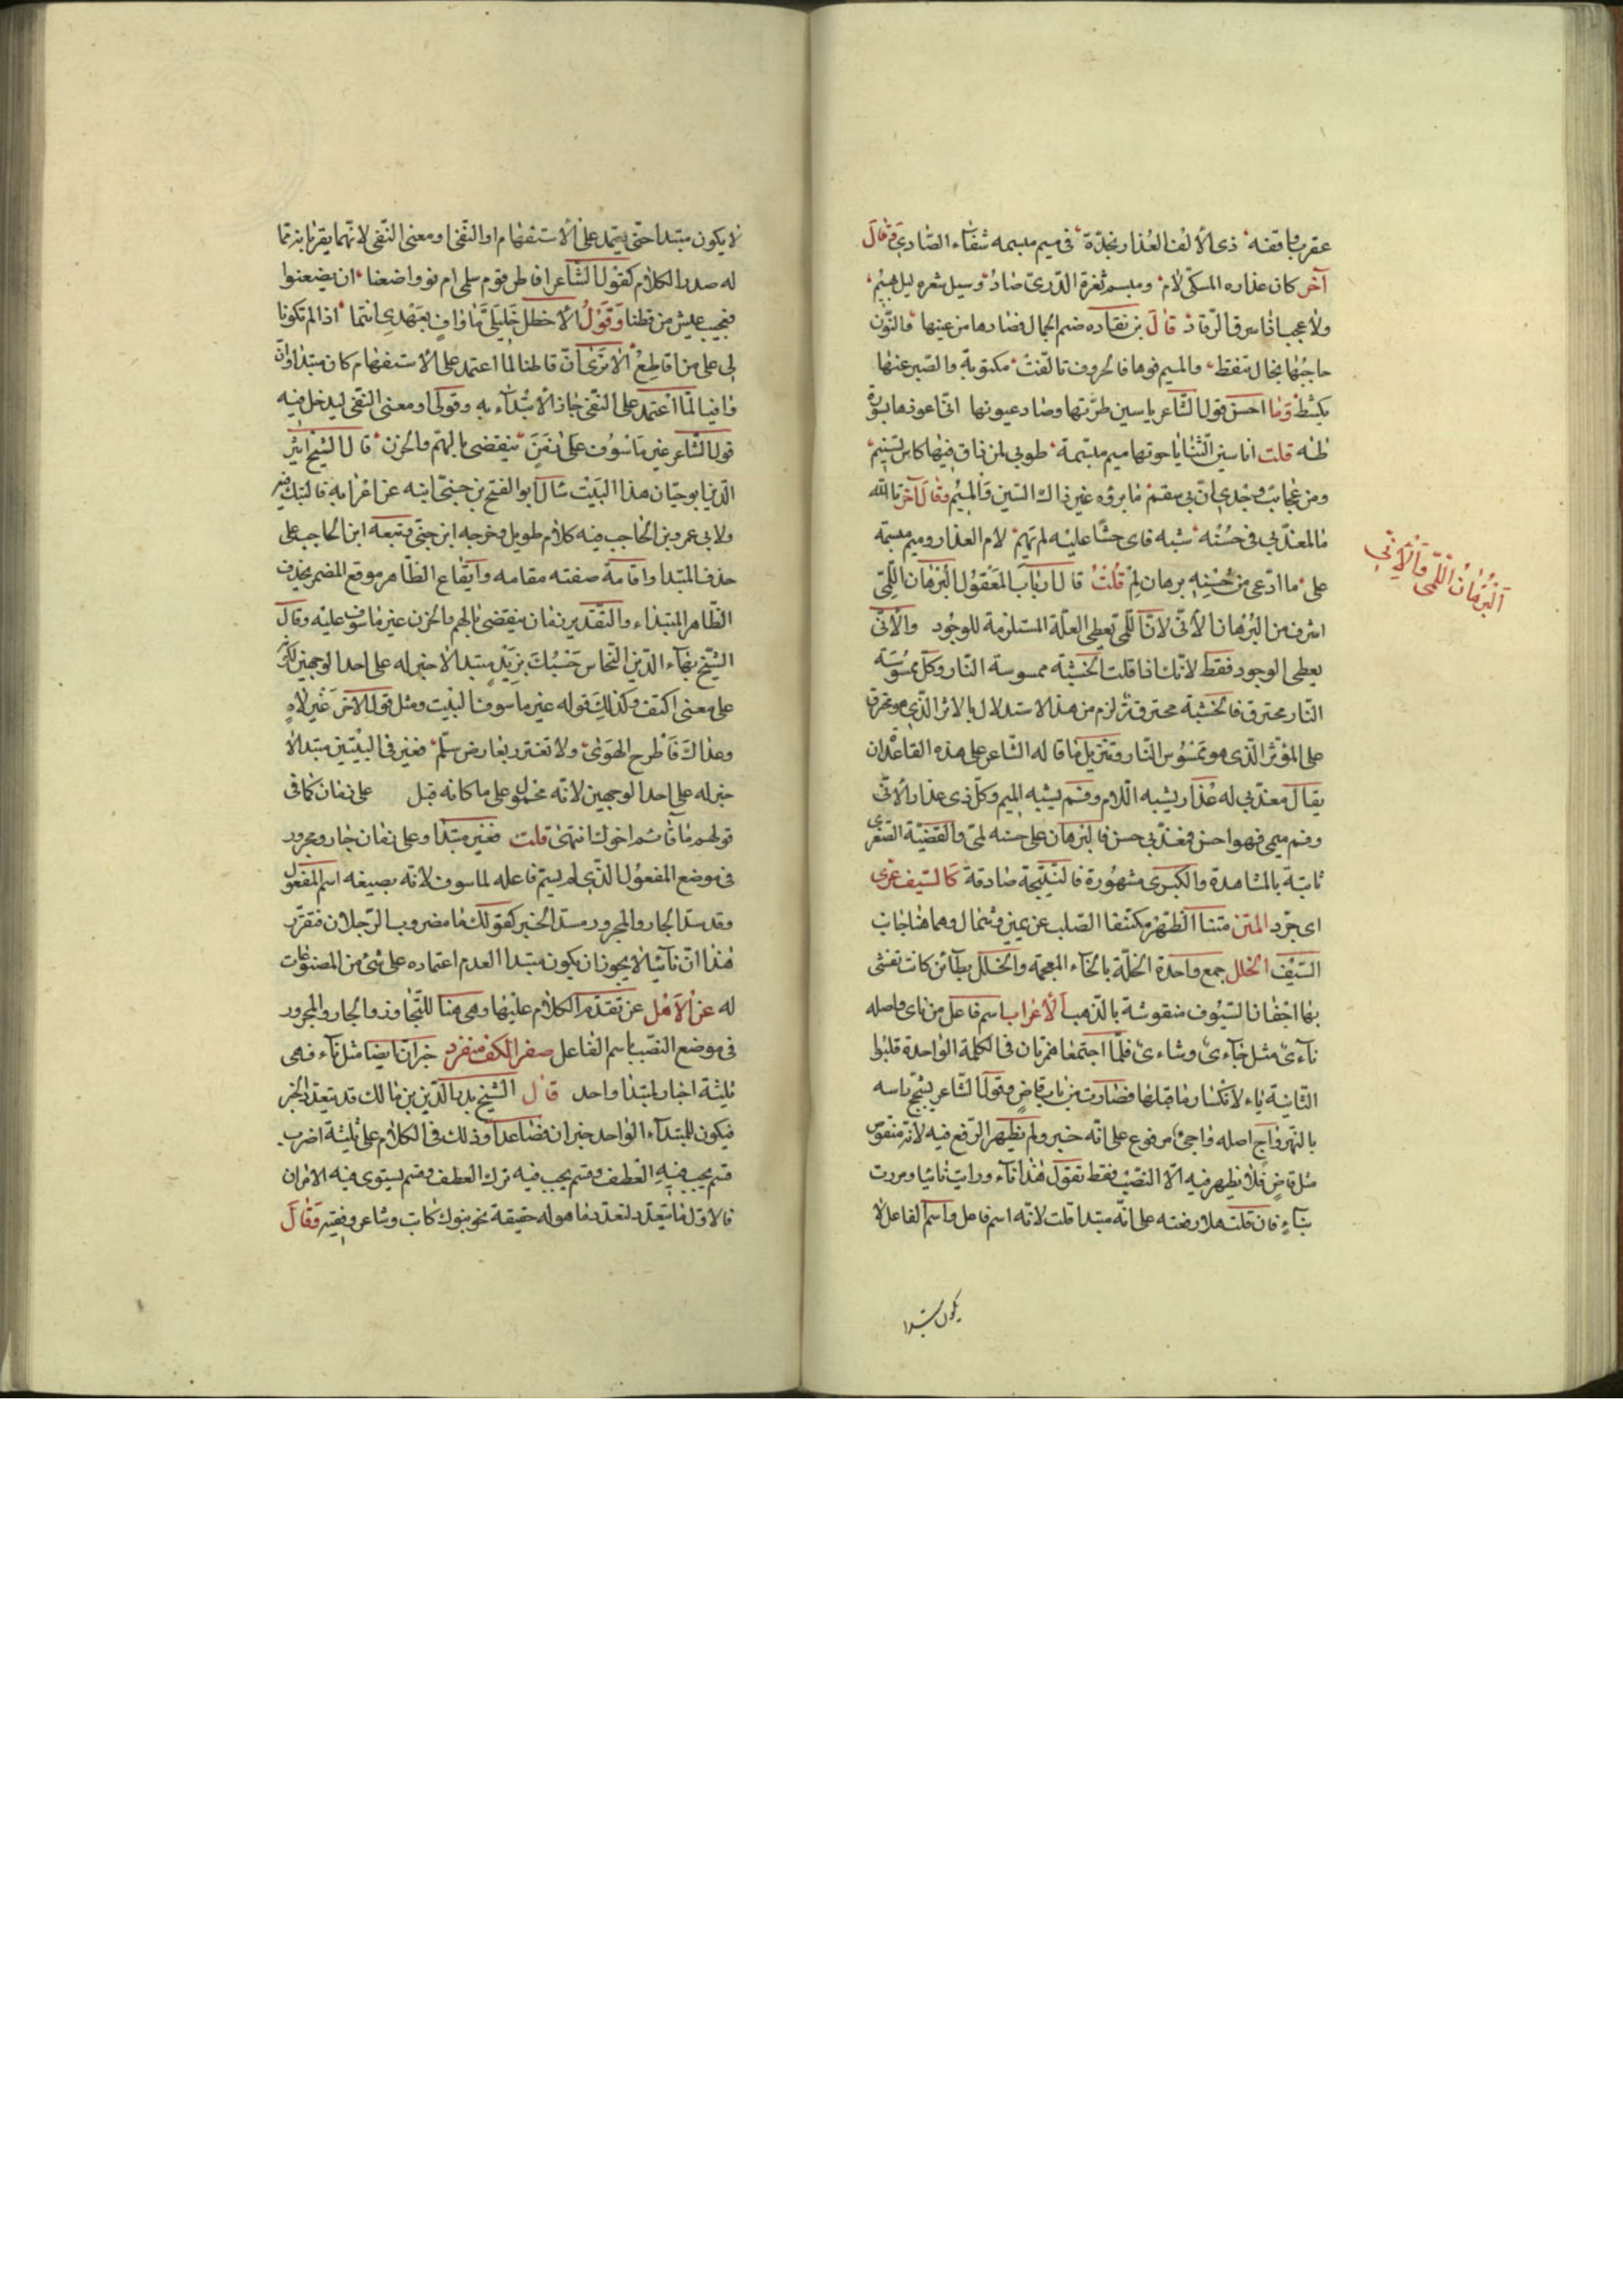 عقرباً قفنه ذى الألف العذار بخدّه في ميم مبسمه شفاء الصادى وقال
آخر كان عذاره المسكىّ لام ومبسم ثغره الدرىّ صاد وسيل شعره ليل بهيم
ولا عجب اذا سرق الرقاد قال بن نقاده ضم الجمال فصادها من عينها فالنون
حاجبها بخال تنقط والميم فوها فالحروف تالّفت مكتوبة والصبر عنها
يكشط وما احسن قول الشاعر ياسين طرّتها وصاد عيونها انى اعوذها بسورة
طه قلت انا سين الثنايا حوتها ميم مبتسمة طوبى لمن ذاق فيها كاس تسنيم
ومن عجائب وجدى ان بى سقم ما برؤه غير ذاك السين والميم وقال آخر تالله
ما لمعذّبى فى حسنه شبه فاى حشًا عليه لم تهم لام العذار وميم مبسمه
على ما ادّعى من حسنه برهان لم قلت قال ارباب المعقول البرهان اللّمّى
اشرف من البرهان الأنّى لانّ اللّمّى يعطى العلّة المستلزمة للوجود والأنّى
يعطى الوجود فقط لانّك اذا قلت الخشبة ممسوسة النار وكلّ ممسوسة
النار محترق فالخشبة محترقة لزم من هذا الاستدلال بالاثر الذى هو محترق
على المؤثر الذى هو ممسوس النار وتنزيل ما قاله الشاعر على هذه القاعدة ان
يقال معذّبى له عذار يشبه اللام وفم يشبه الميم وكلّ ذى عذار لأنّى
وفم ميمى فهو احسن فمعذّبى حسن فالبرهان على حسنه لمّى والقضيّة الصغرى
ثابتة بالمشاهدة والكبرى مشهورة فالنتيجة صادقة كالسيف عرّى
اى جرّد المتن متنا الظهر مكتنفا الصلب عن يمين وشمال وهما هنا جانب
السيف الخلل جمع واحدة الخلّة بالخاء المعجمة والخلل بطائن كانت تغشى
بها اجفان السيوف منقوشة بالذهب الأعراب اسم فاعل من ناى واصله
نآءى مثل جآءى وشاءى فلمّا اجتمعا همزتان فى الكلمة الواحدة قلبوا
الثانية ياء لانكسار ما قبلها فصارت من باب قاض وقول الشاعر يشجّ راسه
بالفهر واجى اصله واجئ مرفوع على انّه خبر ولم يظهر الرفع فيه لانه منقوص
مثل قاض فلا يظهر فيه الّا النصب فقط تقول هذا نآء ورايت نائيا ومررت
بنآءٍ فان قلت هلا رفعته على انّه مبتدا قلت لانّه اسم فاعل واسم الفاعل لا
يكون مبتدا
البرهان اللّمّى والأنّى
لا يكون مبتدا حتى يعتمد على الأستفهام او النفى او معنى النفى لانّهما يقربانه مما
له صدر الكلام كقول الشاعر اقاطن قوم سلمى ام نووا ضعنا ان يضعنوا
فعجيب عيش من قطنا وقول الأخطل خليلىّ ما وافٍ بعهدى انتما اذا لم تكونا
لى على من اقاطع الا ترى انّ قاطنا لما اعتمد على الأستفهام كان مبتدا وانّ
وافيا لمّا اعتمد على النفى جاز الأبتدآء به وقولى او معنى النفى ليدخل فيه
قول الشاعر غير ماسوف على زمن ينقضى بالهمّ والحزن قال الشيخ اثير
الدين ابو حيّان هذا البيت سال ابو الفتح بن جنّى ابنه عن اعرابه فارتبك فيه
ولابى عمرو بن الحاجب فيه كلام طويل وخرجه ابن جنّى وتبعه ابن الحاجب على
حذف المبتدا واقامة صفته مقامه وايقاع الظاهر موقع المضمر بحذف
الظاهر المبتداء والتقدير زمان ينقضى بالهم والحزن غير ماسوف عليه وقال
الشيخ بهآء الدين النحاس حسبك بزيد مبتدا لا خبر له على احد الوجهين لكونه
على معنى اكتف وكذلك قوله غير ماسوف البيت ومثل قول الآخر غير لاه
وعداك فاطرح الهوى ولا تغترر بعارض سلم فغير فى البيتين مبتدا لا
خبر له على احد الوجهين لانّه محمول على ما كانه قيل على زمان كما فى
قولهم ما قائم اخوك انتهى قلت فغير مبتدا وعلى زمان جار ومجرور
فى موضع المفعول الذى لم يسمّ فاعله لماسوف لانّه بصيغه اسم المفعول
وقد سدّ الجار والمجرور مسدّ الخبر كقولك ما مضروب الرجلان فتقرّر
هذا انّ نآئيا لا يجوز ان يكون مبتدا العدم اعتماده على شئ من المصنوعات
له عن الأهل عن تقدّم الكلام عليها وهى هنا للتجاوز والجار والمجرور
فى موضع النصب باسم الفاعل صفر الكف منفرد خبر ان ايضا مثل نآء فهى
ثلثة اخبار لمبتدا واحد قال الشيخ بدر الدين بن مالك قد يتعدّد الخبر
فيكون للمبتدآء الواحد خبران فصاعدا وذلك فى الكلام على ثلثة اضرب
قسم يجب فيه العطف وقسم يجب فيه ترك العطف وقسم يستوى فيه الامران
فالاوّل ما يتعدّد لتعدّد ما هو له حقيقة نحو بنوك كاتب وشاعر وفقيه وقال